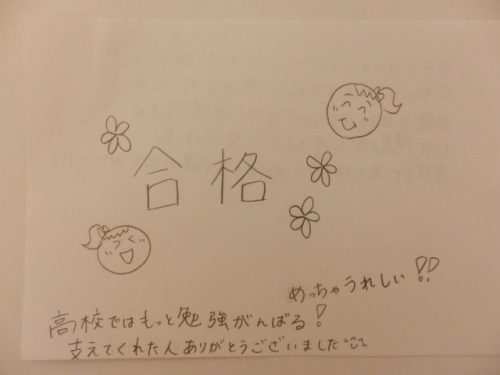 合格
めっちゃうれしい!!
高校ではもっと勉強がんばる!
支えてくれた人ありがとうございました